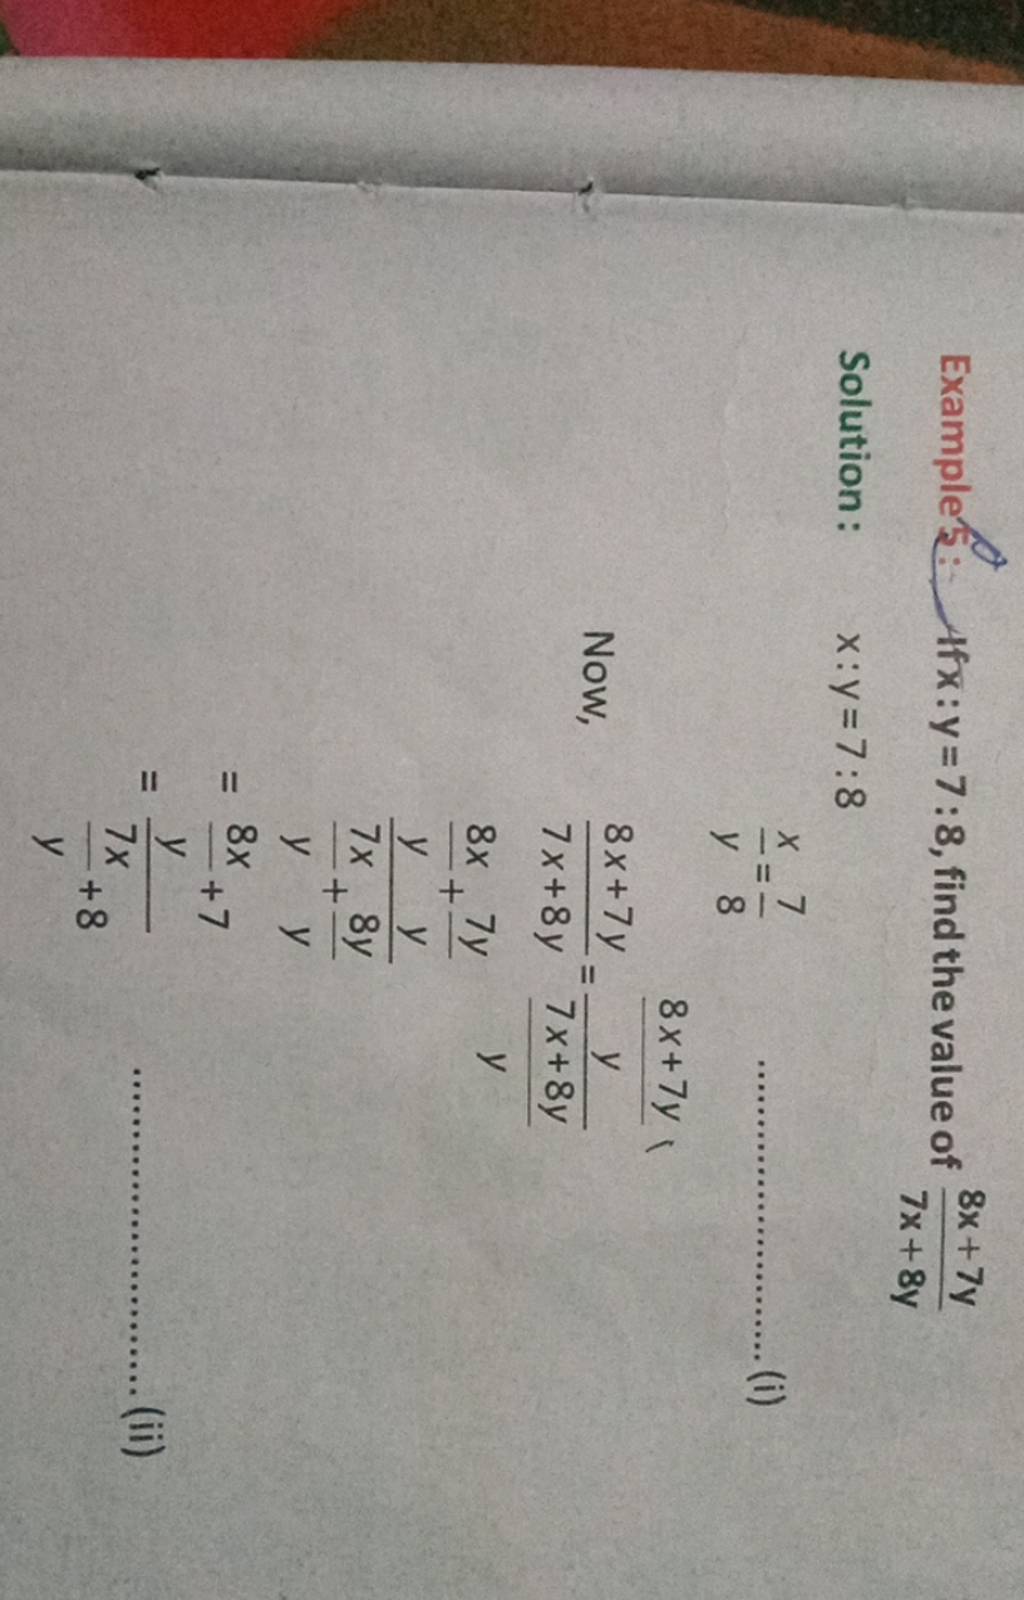 Example 5 : If x : y = 7 : 8, find the value of
8x + 7y
7x + 8y
Solution : x : y = 7 : 8
x 7
=
y 8
.................................. (i)
8x + 7y
Now,
8x + 7y
7x + 8y
=
y
7x + 8y
y
8x 7y
+
y y
7x 8y
+
y y
=
8x
+ 7
y
=
7x
+ 8
y
.................................. (ii)